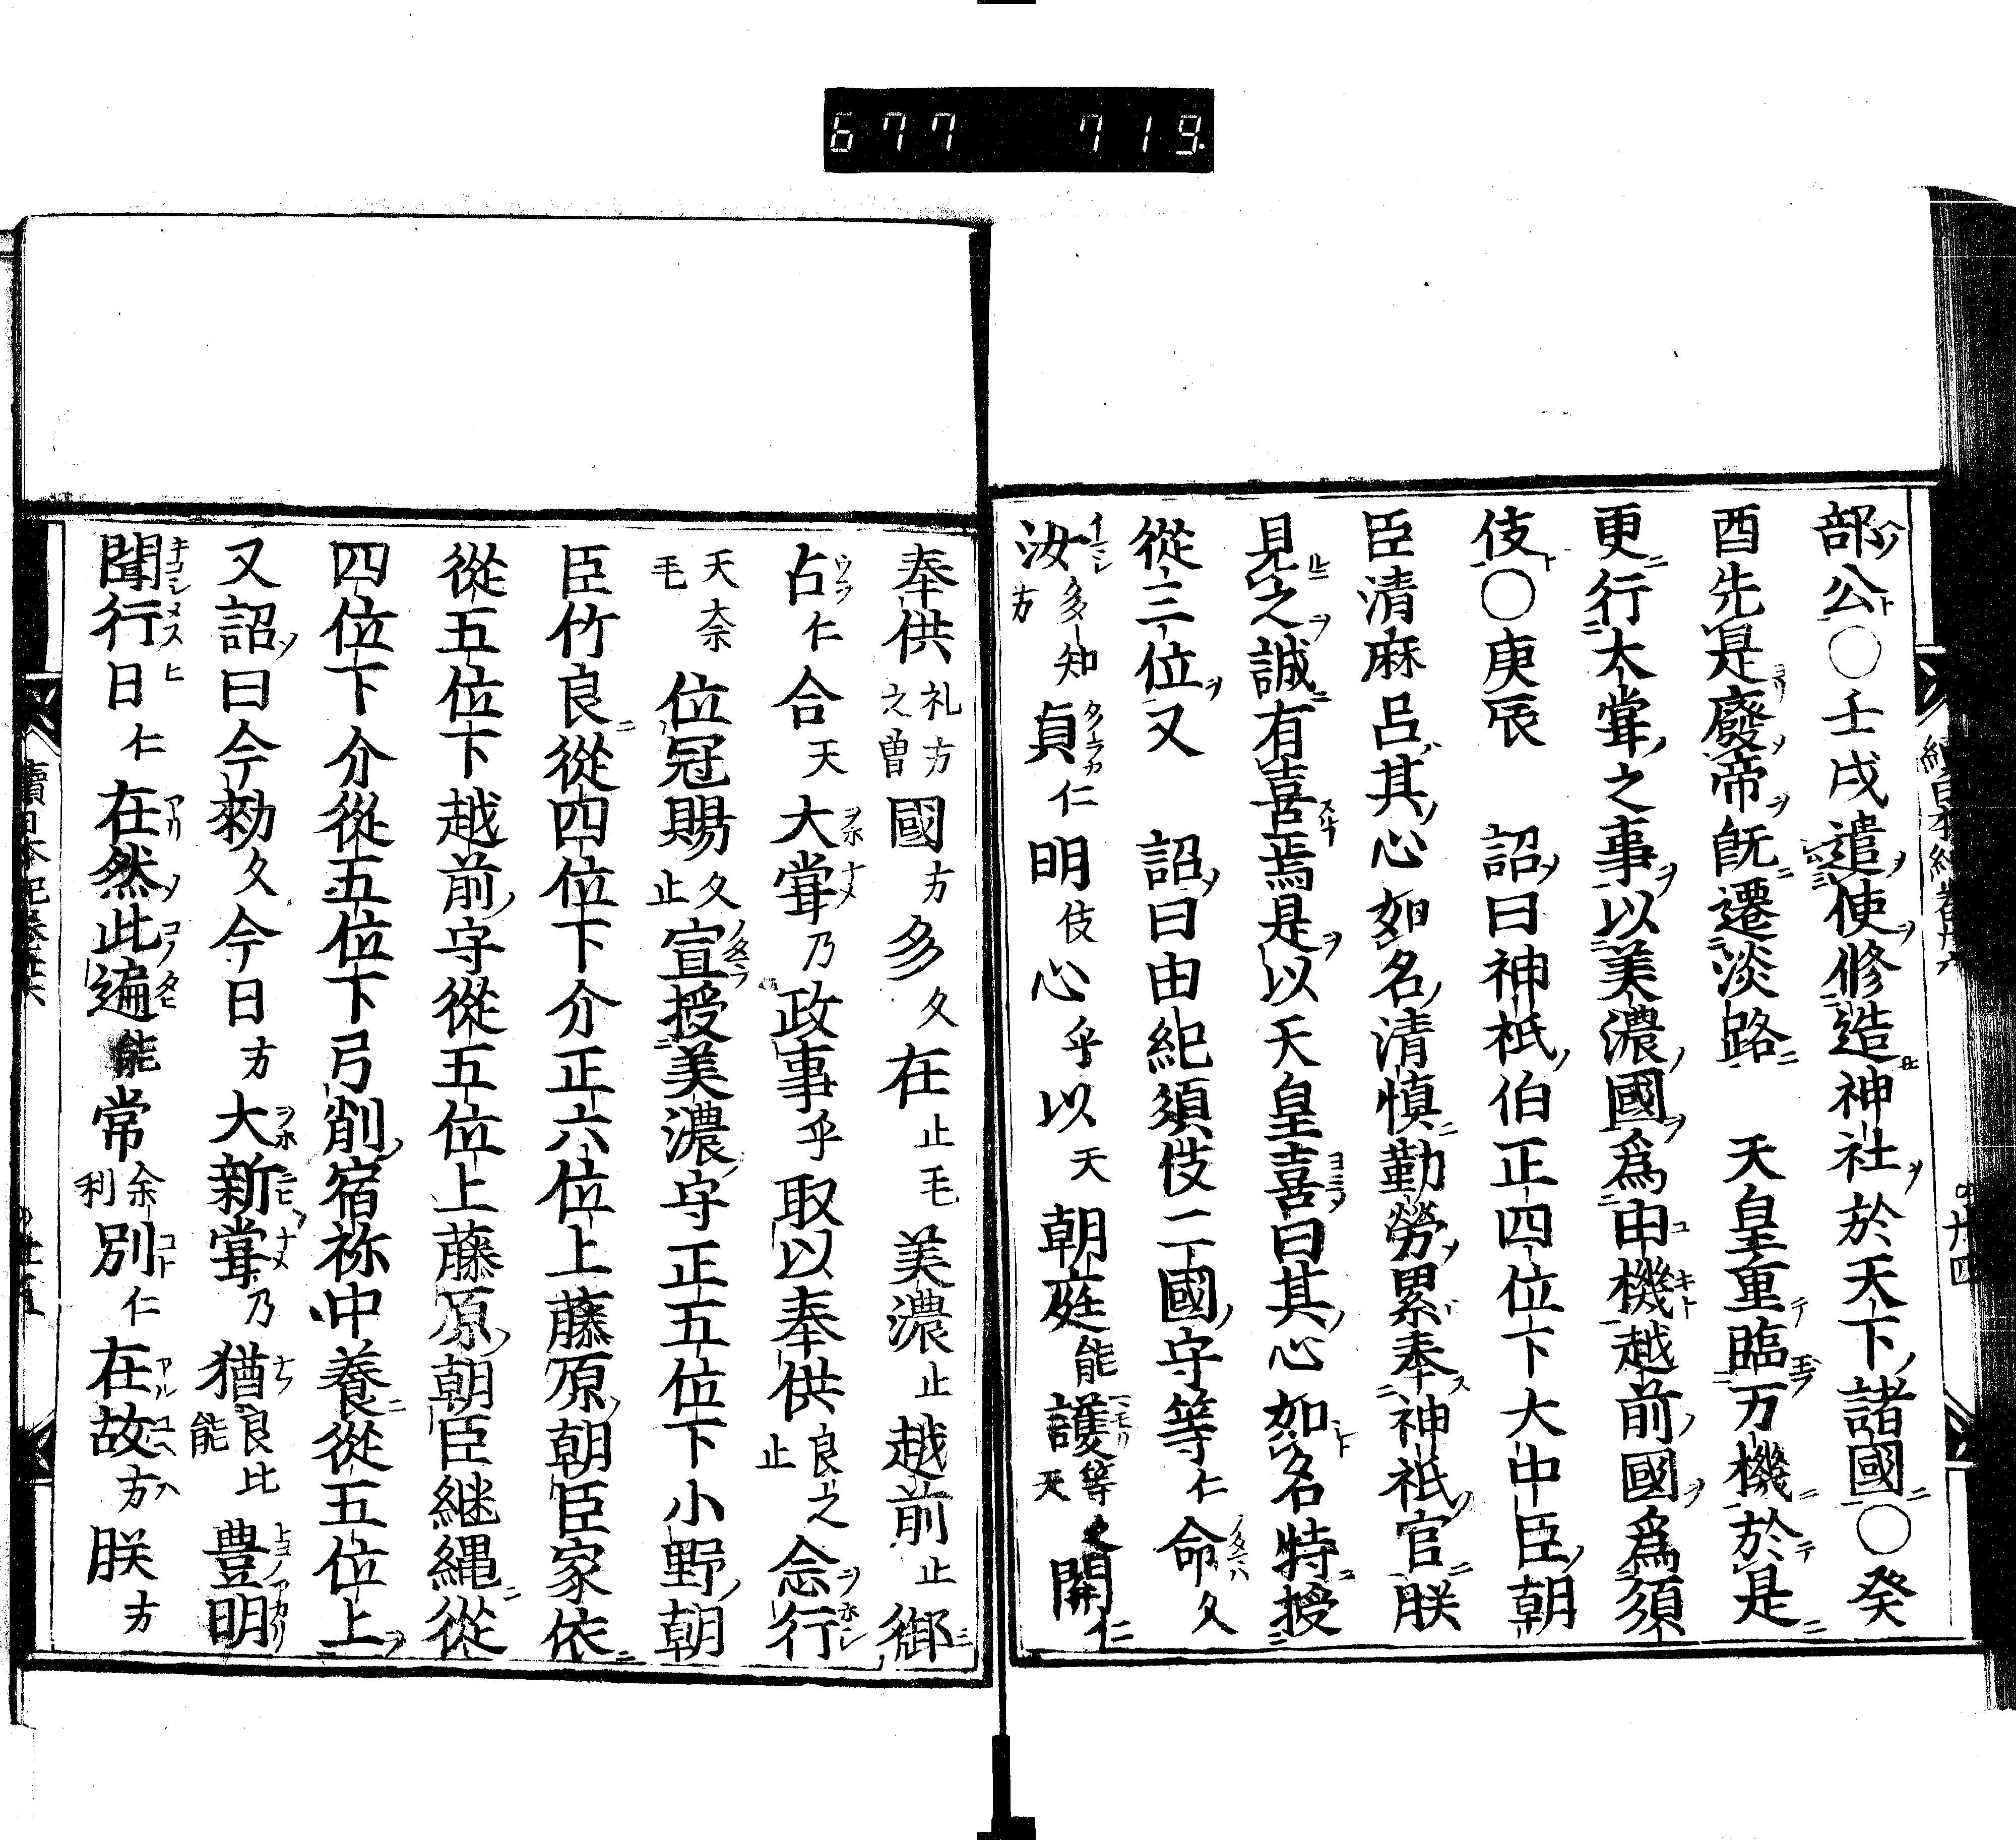 677 719
部公○壬戌遣使修造神社於天下諸國○癸
酉先是廢帝既遷淡路 天皇重臨万機於是
更行大甞之事以美濃國爲由機越前國爲須
伎○庚辰 詔曰神祇伯正四位下大中臣朝
臣清麻呂其心如名清慎勤勞累奉神祇官朕
見之誠有喜焉是以天皇喜曰其心如名特授
從三位又 詔曰由紀須伎二國守等仁命久
汝多知方貞仁明伎心乎以天朝庭能護等天之開仁
奉供礼方之曽國方多久在止毛美濃止越前止御
占仁合天大甞乃政事乎取以奉供良之止念行
天奈毛位冠賜久止宣授美濃守正五位下小野朝
臣竹良從四位下介正六位上藤原朝臣家依
從五位下越前守從五位上藤原朝臣継縄從
四位下介從五位下弓削宿祢中養從五位上
又詔曰今勅久今日方大新甞乃猶良比能豊明
聞行日仁在然此遍能常余利別仁在故方朕方